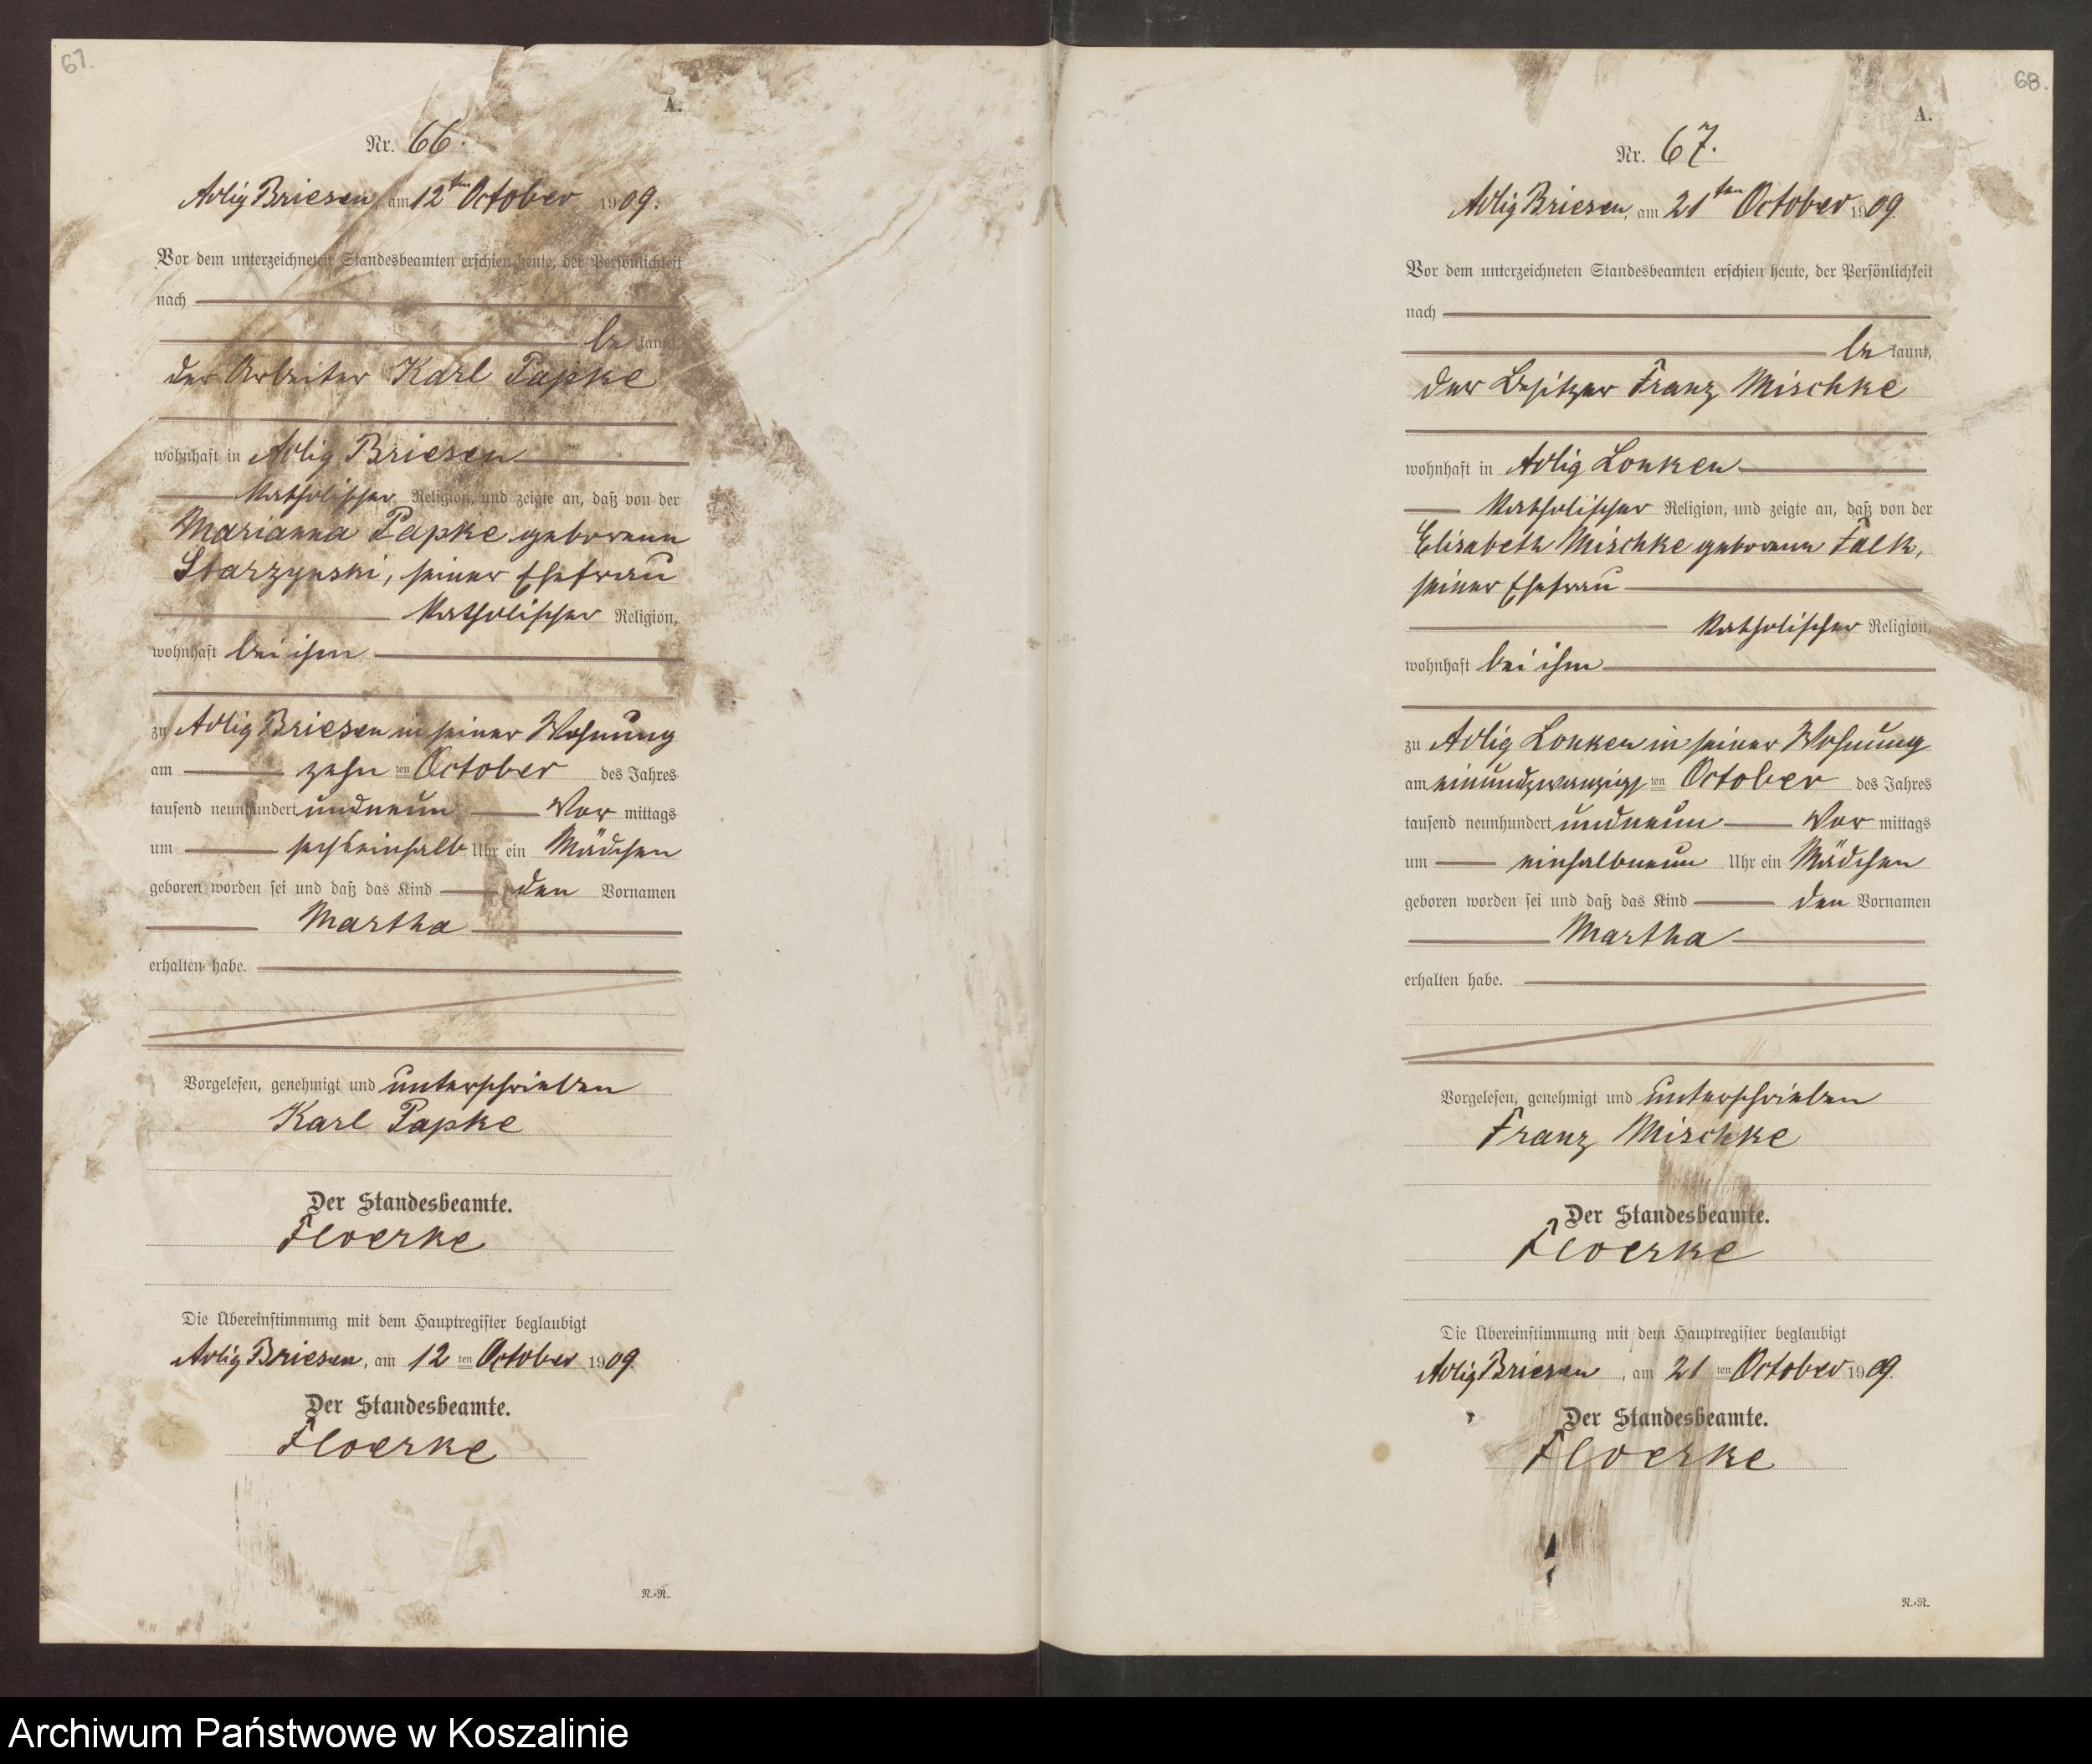 67.
A.
Nr. 66.
Adlig Briesen, am 12ten October 1909.
Vor dem unterzeichneten Standesbeamten erschien heute, der Persönlichkeit
nach
be kannt,
der Arbeiter Karl Papke
wohnhaft in Adlig Briesen
katholischer Religion, und zeigte an, daß von der
Marianna Papke geborenen
Starzynski, seiner Ehefrau
katholischer Religion,
wohnhaft bei ihm
zu Adlig Briesen in seiner Wohnung
am zehn ten October des Jahres
tausend neunhundert undneun Vor mittags
um sechseinhalb Uhr ein Mädchen
geboren worden sei und daß das Kind den Vornamen
Martha
erhalten habe.
Vorgelesen, genehmigt und unterschrieben
Karl Papke
Der Standesbeamte.
Floerke
Die Übereinstimmung mit dem Hauptregister beglaubigt
Adlig Briesen, am 12 ten October 1909.
Der Standesbeamte.
Floerke
N.=R.
68.
A.
Nr. 67.
Adlig Briesen, am 21ten October 1909.
Vor dem unterzeichneten Standesbeamten erschien heute, der Persönlichkeit
nach
be kannt,
der Besitzer Franz Mischke
wohnhaft in Adlig Lonken
katholischer Religion, und zeigte an, daß von der
Elisabeth Mischke geborenen Falk,
seiner Ehefrau
katholischer Religion,
wohnhaft bei ihm
zu Adlig Lonken in seiner Wohnung
am einundzwanzigs ten October des Jahres
tausend neunhundert undneun Vor mittags
um einhalbneun Uhr ein Mädchen
geboren worden sei und daß das Kind den Vornamen
Martha
erhalten habe.
Vorgelesen, genehmigt und unterschrieben
Franz Mischke
Der Standesbeamte.
Floerke
Die Übereinstimmung mit dem Hauptregister beglaubigt
Adlig Briesen, am 21 ten October 1909.
Der Standesbeamte.
Floerke
N.=R.
Archiwum Państwowe w Koszalinie